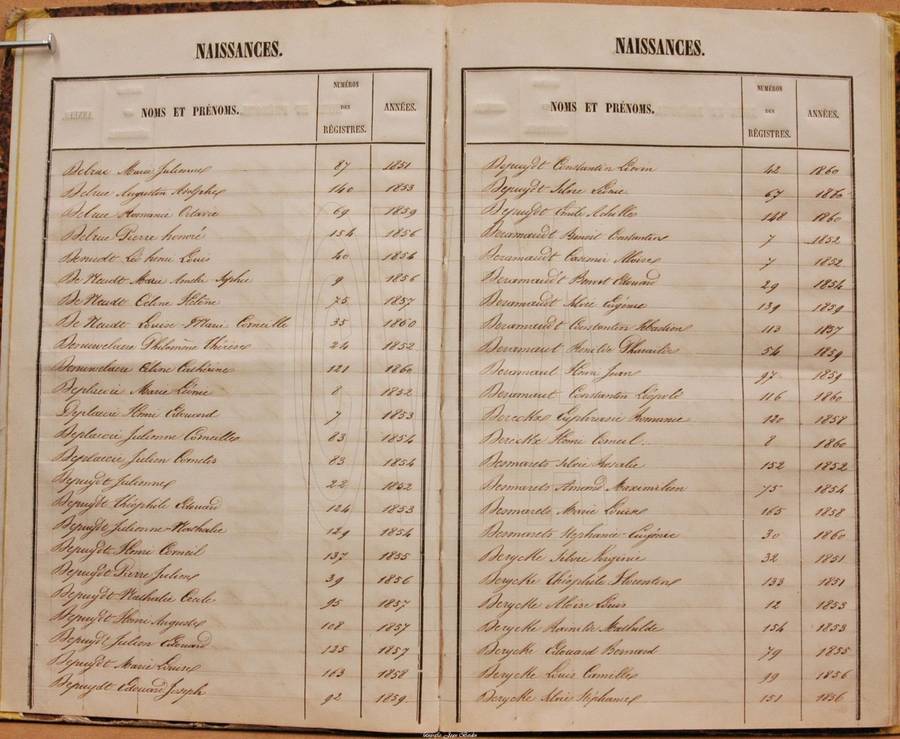 NAISSANCES.
NOMS ET PRÉNOMS. NUMÉROS DES RÉGISTRES. ANNÉES.
Delrue Marie Julienne 87 1851
Delrue Augustin Adolphe 140 1853
Delrue Romanie Octavie 69 1859
Delrue Pierre honoré 154 1856
Louis 40 1854
De Naudt Marie Sophie 9 1856
De Naudt Celine Hélène 75 1857
De Naudt Louise Marie Corneille 35 1860
Denuwelaere Philomène Thérèse 24 1852
Denuwelaere Celine Catherine 121 1860
Deplaecie Marie Léonie 8 1852
Deplaecie Henri Edouard 7 1853
Deplaecie Julienne Corneille 83 1854
Deplaecie Julien Cornelis 83 1854
Depuydt Julienne 22 1852
Depuydt Théophile Edouard 124 1853
Depuydt Julienne Nathalie 129 1854
Depuydt Henri Corneil 137 1855
Depuydt Pierre Julien 39 1856
Depuydt Nathalie Cecile 95 1857
Depuydt Henri Auguste 108 1857
Depuydt Julien Edouard 125 1857
Depuydt Marie Louise 163 1858
Depuydt Edouard Joseph 92 1859
NAISSANCES.
NOMS ET PRÉNOMS. NUMÉROS DES RÉGISTRES. ANNÉES.
Depuydt Constantin 42 1860
Depuydt 67 1860
Depuydt Emile Achille 148 1860
Deramaudt Benoit Constantin 7 1852
Deramaudt Casimir Aloise 7 1852
Deramaudt Benoit Edouard 29 1854
Deramaudt Silvie Eugénie 139 1859
Deramaudt Constantin Sebastien 113 1857
Deramaut 54 1859
Deramaut Henri Jean 97 1859
Deramaut Constantin Léopold 116 1860
Dereckke Euphrasie Romanie 120 1858
Derickke Henri Corneil. 8 1860
Desmarets Silvie Rosalie 152 1852
Desmarets Amand Maximilien 75 1854
Desmarets Marie Louise 165 1858
Desmarets Stephanie Eugénie 30 1860
Derycke Silvie Virginie 32 1851
Derycke Théophile Florentin 133 1851
Derycke Aloise Louis 12 1853
Derycke Mathilde 154 1853
Derycke Edouard Bernard 79 1855
Derycke Louis Camille 99 1856
Derycke Silvie Stephanie 151 1856